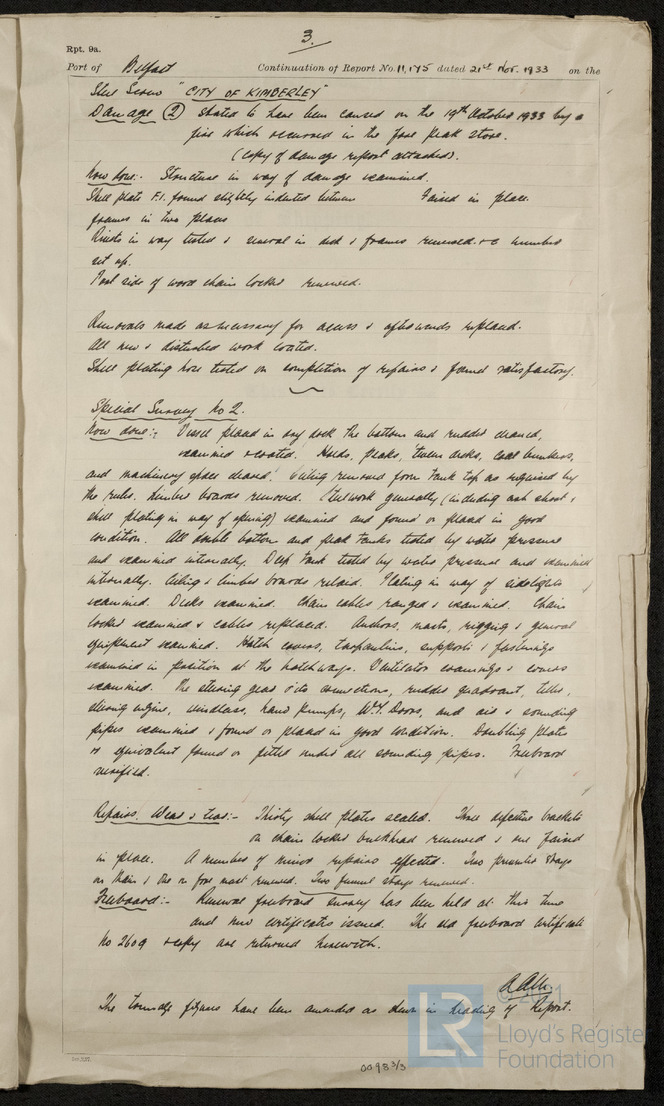 3.
Rpt. 9a.
Port of Belfast Continuation of Report No. 11,175 dated 21st Nov. 1933 on the
Steel Screw "CITY OF KIMBERLEY"
Damage (2) Stated to have been caused on the 19th October 1933 by a
fire which occurred in the fore peak store.
(Copy of damage report attached).
Now done:- Structure in way of damage examined.
Shell plate F.1. found slightly indented between Faired in place.
frames in two places
Rivets in way tested & several in deck & frames renewed & a number
set up.
Port side of wood chain locker renewed.
Removals made as necessary for access & afterwards replaced.
All new & disturbed work coated.
Shell plating hose tested on completion of repairs & found satisfactory.
Special Survey No 2.
Now done:- Vessel placed in dry dock the bottom and rudder cleaned,
examined & coated. Holds, peaks, 'tween decks, coal bunkers,
and machinery space cleared. Ceiling removed from tank top as required by
the rules. Limber boards removed. Steelwork generally (including ash shoot &
shell plating in way of opening) examined and found or placed in good
condition. All double bottom and peak tanks tested by water pressure
and examined internally. Deep tank tested by water pressure and examined
internally. Ceiling & limber boards relaid. Plating in way of sidelights
examined. Decks examined. Chain cables ranged & examined. Chain
locker examined & cables replaced. Anchors, masts, rigging & general
equipment examined. Hatch covers, tarpaulins, supports & fastenings
examined in position at the hatchways. Ventilator coamings & covers
examined. The steering gear & its connections, rudder quadrant, tiller,
steering engine, windlass, hand pumps, W.T. Doors, and air & sounding
pipes examined & found or placed in good condition. Doubling plates
or equivalent found or fitted under all sounding pipes. Freeboard
verified.
Repairs. Wear & tear:- Thirty shell plates scaled. Three defective brackets
on chain locker bulkhead renewed & one faired
in place. A number of minor repairs effected. Two preventer stays
on Main & One on fore mast renewed. Two funnel stays renewed.
Freeboard:- Renewal freeboard survey has been held at this time
and new certificates issued. The old freeboard certificate
No 2609 & copy are returned herewith.
The tonnage figures have been amended as shown in heading of Report.
© 2021
LR
Lloyd's Register
Foundation
0098 3/3